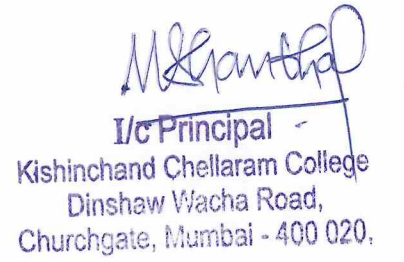 I/c Principal
Kishinchand Chellaram College
Dinshaw Wacha Road,
Churchgate, Mumbai - 400 020.